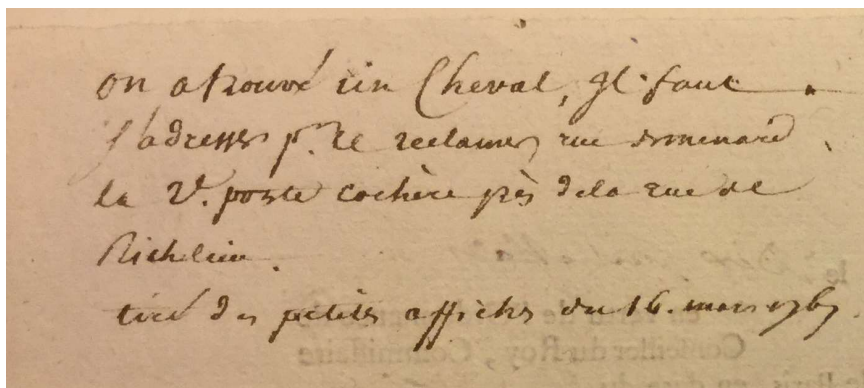 on a trouvé un Cheval, Jl faut
s'adresser pr. le reclamer rue demenard
la 2e. porte cochère près dela rue de
Richelieu.
tiré des petites affiches du 16. mars 1767.
Conseiller du Roy, Commissaire